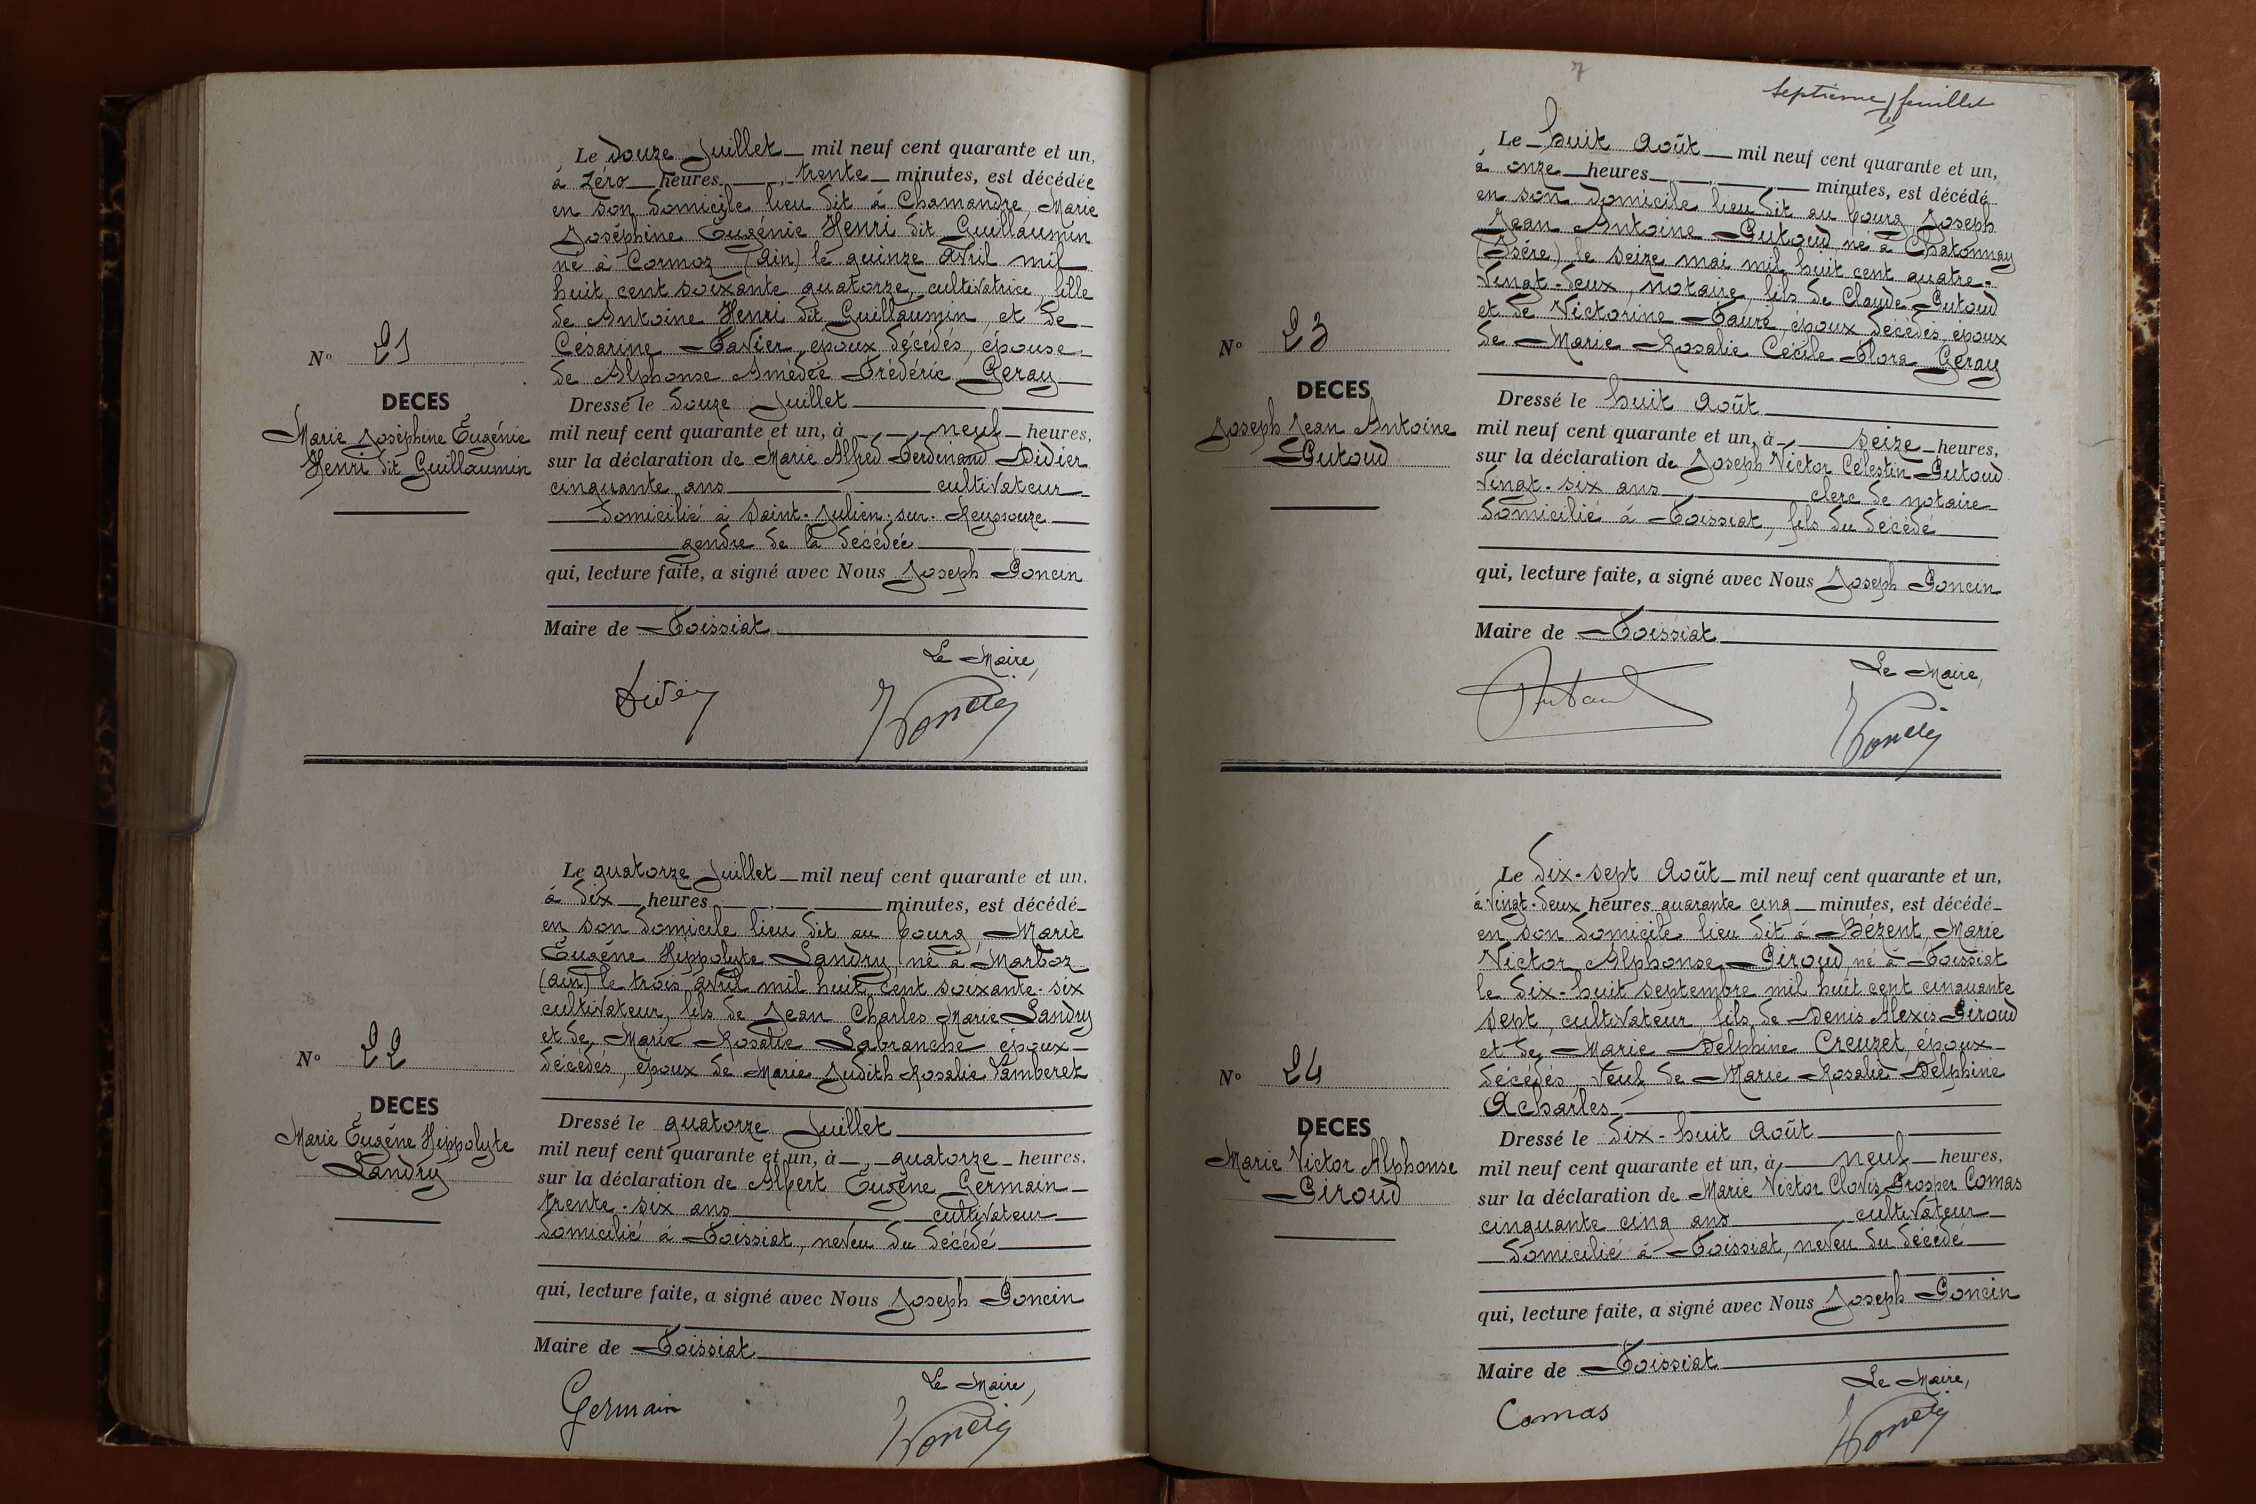 Le douze Juillet mil neuf cent quarante et un,
à zéro heures trente minutes, est décédée
en son domicile lieu dit à Chamandre, Marie
Joséphine Eugénie Henri dit Guillaumin
né à Cormoz (Ain) le quinze avril mil
huit cent soixante quatorze, cultivatrice, fille
de Antoine Henri dit Guillaumin, et de
Césarine Tavier, époux décédés, épouse
de Alphonse Amédée Frédéric Geray
N° 21
DECES
Marie Joséphine Eugénie
Henri dit Guillaumin
Dressé le douze Juillet
mil neuf cent quarante et un, à neuf heures,
sur la déclaration de Marie Alfred Ferdinand Didier
cinquante ans cultivateur
domicilié à Saint-Julien-sur-Reyssouze
gendre de la décédée
qui, lecture faite, a signé avec Nous Joseph Poncin
Maire de Foissiat
Le Maire,
Didier
Poncin
Le quatorze Juillet mil neuf cent quarante et un,
à dix heures minutes, est décédé
en son domicile lieu dit au bourg, Marie
Eugéne Hippolyte Landry, né à Marboz
(ain) le trois avril mil huit cent soixante-six
cultivateur, fils de Jean Charles Marie Landry
et de Marie Rosalie Labranche époux
décédés, époux de Marie Judith Rosalie Pamberet
N° 22
DECES
Marie Eugéne Hippolyte
Landry
Dressé le quatorze Juillet
mil neuf cent quarante et un, à quatorze heures,
sur la déclaration de Albert Eugène Germain
trente-six ans cultivateur
domicilié à Foissiat, neveu du décédé
qui, lecture faite, a signé avec Nous Joseph Poncin
Maire de Foissiat
Le Maire,
Germain
Poncin
7
septième feuillet
Le huit Août mil neuf cent quarante et un,
à onze heures minutes, est décédé
en son domicile lieu dit au bourg Joseph
Jean Antoine Putoud né à Chatonnay
(Isére) le seize mai mil huit cent quatre-
vingt-deux, notaire, fils de Claude Putoud
et de Victorine Faure, époux décédés, époux
de Marie Rosalie Cécile Flora Geray
N° 23
DECES
Joseph Jean Antoine
Putoud
Dressé le huit Août
mil neuf cent quarante et un, à seize heures,
sur la déclaration de Joseph Victor Célestin Putoud
vingt-six ans clerc de notaire
domicilié à Foissiat, fils du décédé
qui, lecture faite, a signé avec Nous Joseph Poncin
Maire de Foissiat
Le Maire,
Putoud
Poncin
Le dix-sept Août mil neuf cent quarante et un,
à vingt-deux heures quarante cinq minutes, est décédé
en son domicile lieu dit à Bézent, Marie
Victor Alphonse Piroud, né à Foissiat
le dix-huit septembre mil huit cent cinquante
sept, cultivateur, fils de Denis Alexis Piroud
et de Marie Delphine Creuzet, époux
décédés, veuf de Marie Rosalie Delphine
Acharles
N° 24
DECES
Marie Victor Alphonse
Piroud
Dressé le dix-huit Août
mil neuf cent quarante et un, à neuf heures,
sur la déclaration de Marie Victor Clovis Prosper Comas
cinquante cinq ans cultivateur
domicilié à Foissiat, neveu du décédé
qui, lecture faite, a signé avec Nous Joseph Poncin
Maire de Foissiat
Le Maire,
Comas
Poncin